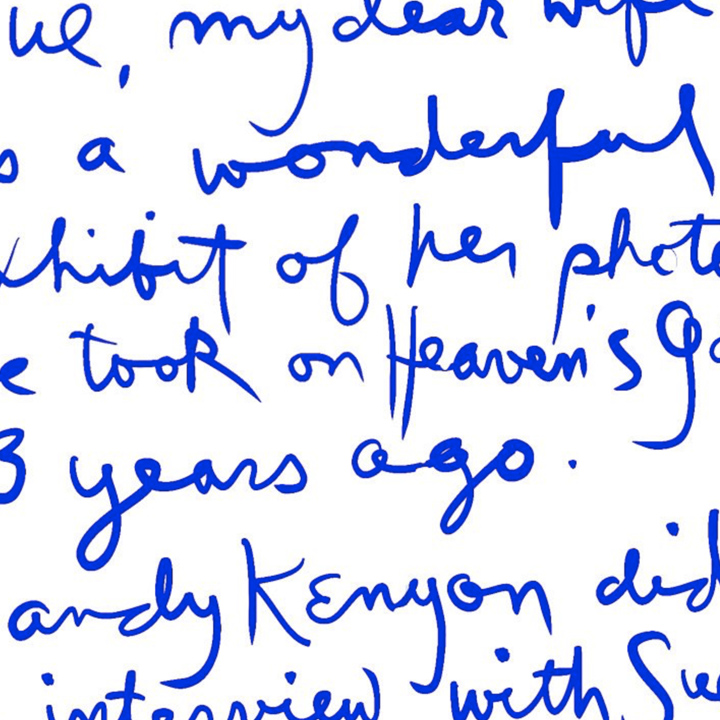 ue, my dear wife
s a wonderful
xhibit of her photo
e took on Heaven's Ga
3 years ago.
andy Kenyon did
interview with Sue